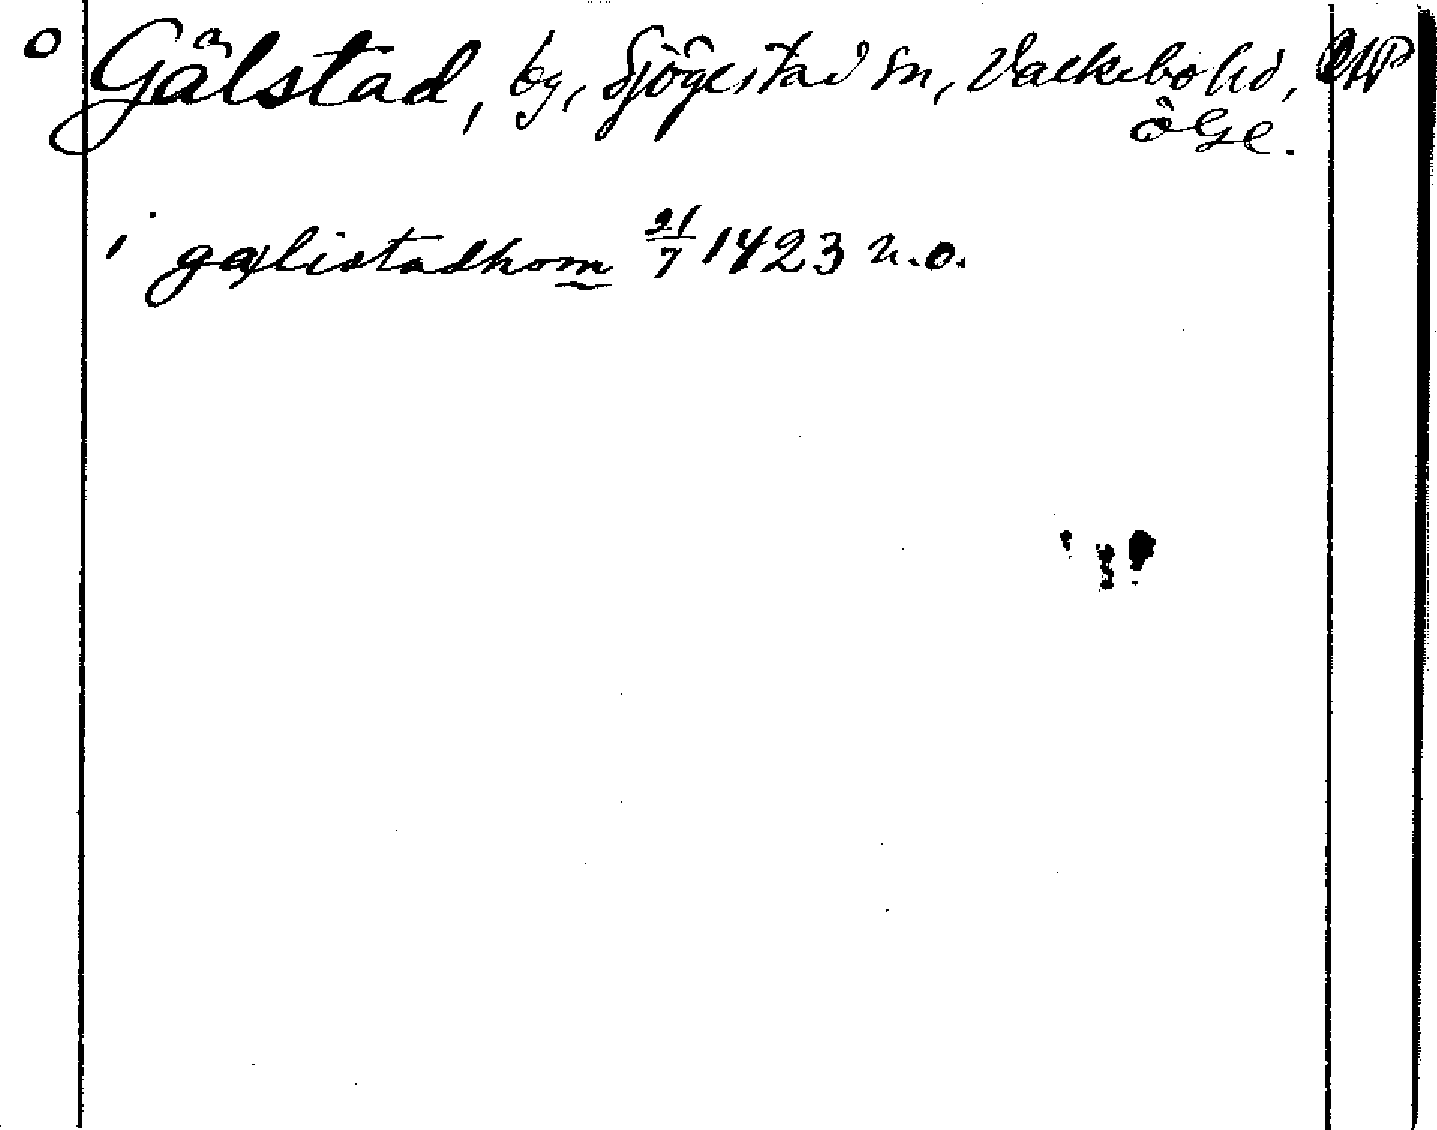 o Gälstad, by, Sjögestad sn, Valkebo hd,
ÖGl.
i gælistadhom 21/7 1423 n.o.